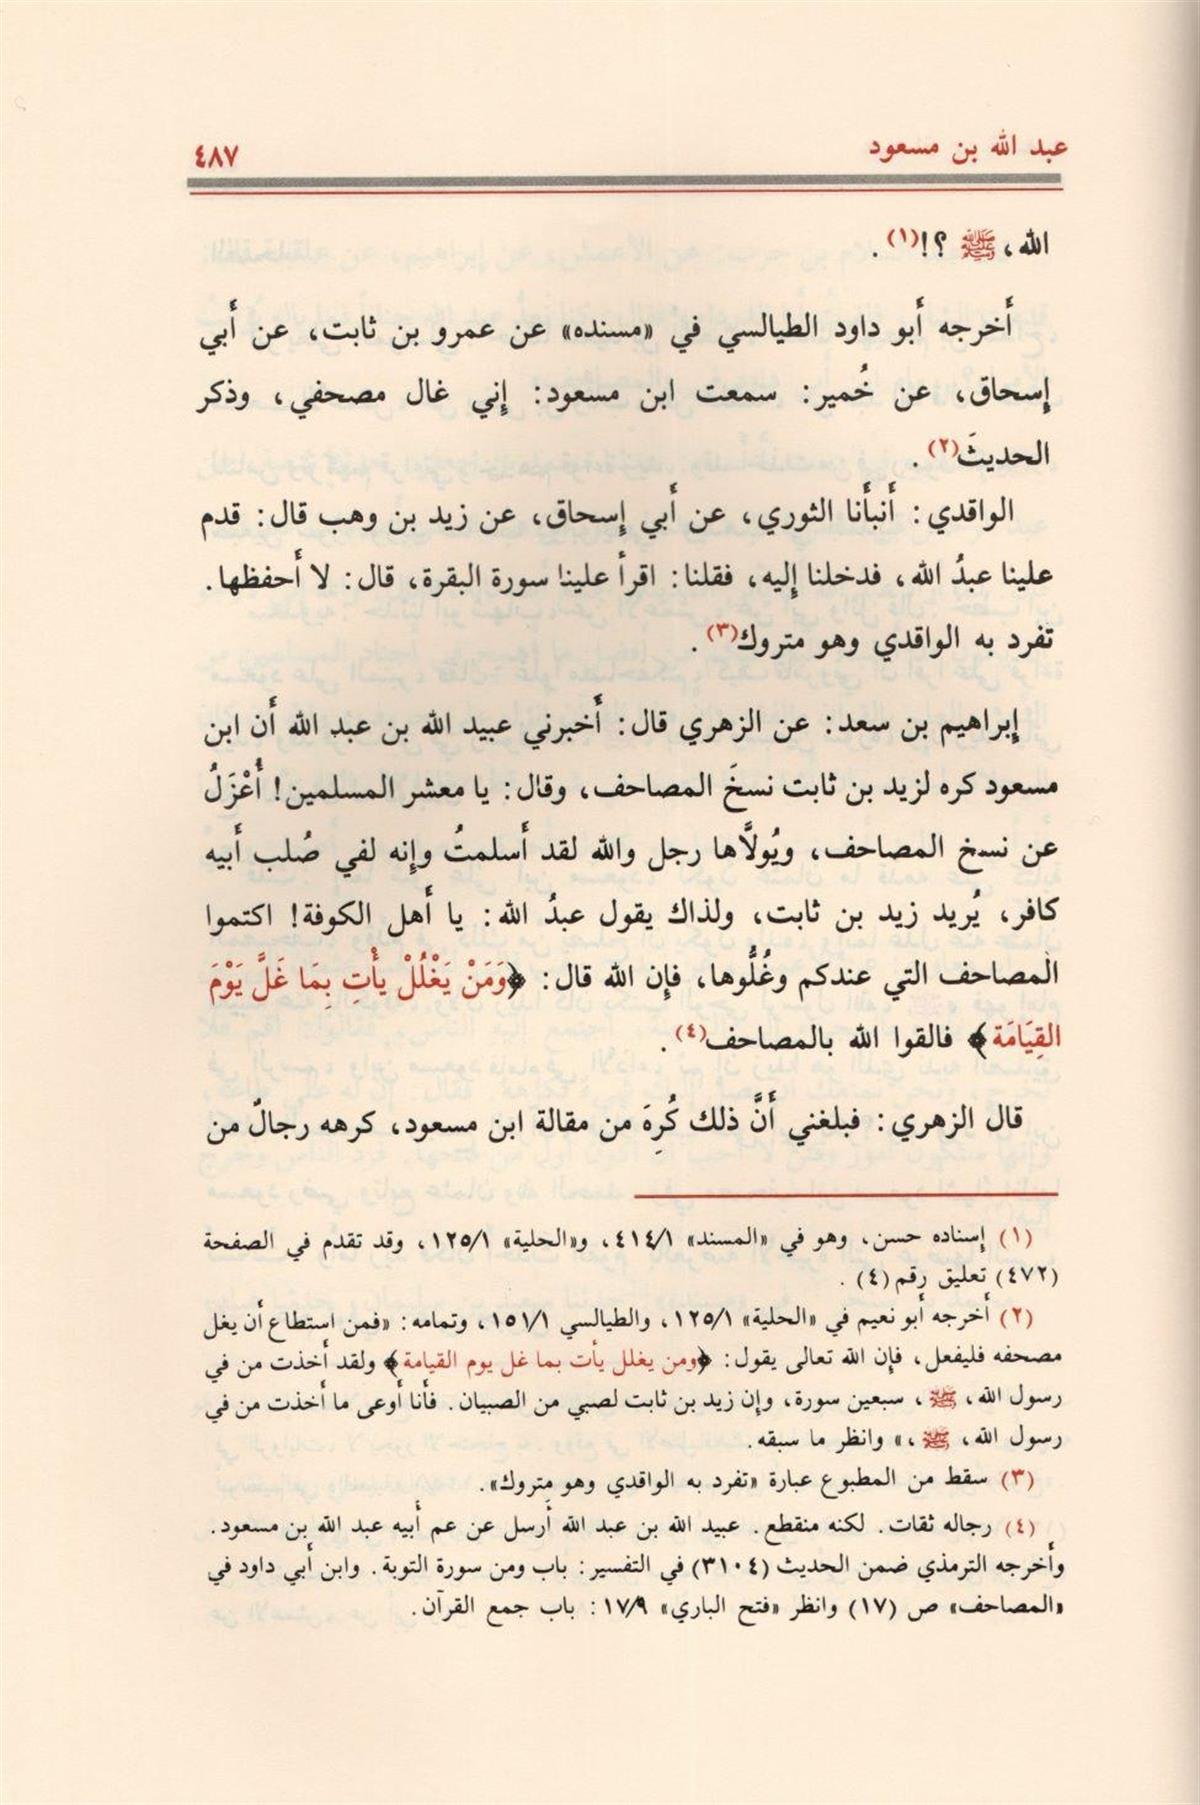 عبد الله بن مسعود ٤٨٧
الله، ﷺ ؟!(١).
أَخرجه أَبو داود الطيالسي في «مسنده» عن عمرو بن ثابت، عن أَبي
إِسحاق، عن خُمير: سمعت ابن مسعود: إِني غال مصحفي، وذكر
الحديثَ(٢).
الواقدي: أَنبأَنا الثوري، عن أَبي إِسحاق، عن زيد بن وهب قال: قدم
علينا عبدُ الله، فدخلنا إِليه، فقلنا: اقرأ علينا سورة البقرة، قال: لا أَحفظها.
تفرد به الواقدي وهو متروك(٣).
إِبراهيم بن سعد: عن الزهري قال: أَخبرني عبيد الله بن عبد الله أَن ابن
مسعود كره لزيد بن ثابت نسخَ المصاحف، وقال: يا معشر المسلمين! أُعْزَلُ
عن نسخ المصاحف، ويُولَّاها رجل والله لقد أَسلمتُ وإِنه لفي صُلب أَبيه
كافر، يُريد زيد بن ثابت، ولذاك يقول عبدُ الله: يا أَهل الكوفة! اكتموا
المصاحف التي عندكم وغُلُّوها، فإِن الله قال: ﴿وَمَنْ يَغْلُلْ يأْتِ بِمَا غَلَّ يَوْمَ
القِيَامَة﴾ فالقوا الله بالمصاحف(٤).
قال الزهري: فبلغني أَنَّ ذلك كُرِهَ من مقالة ابن مسعود، كرهه رجالٌ من
(١) إِسناده حسن، وهو في «المسند» ٤١٤/١، و«الحلية» ١٢٥/١، وقد تقدم في الصفحة
(٤٧٢) تعليق رقم (٤).
(٢) أَخرجه أَبو نعيم في «الحلية» ١٢٥/١، والطيالسي ١٥١/١، وتمامه: «فمن استطاع أَن يغل
مصحفه فليفعل، فإِن الله تعالى يقول: ﴿ومن يغلل يأت بما غل يوم القيامة﴾ ولقد أَخذت من في
رسول الله، ﷺ، سبعين سورة، وإِن زيد بن ثابت لصبي من الصبيان. فأَنا أَوعى ما أَخذت من في
رسول الله، ﷺ،» وانظر ما سبقه.
(٣) سقط من المطبوع عبارة «تفرد به الواقدي وهو متروك».
(٤) رجاله ثقات. لكنه منقطع. عبيد الله بن عبد الله أَرسل عن عم أَبيه عبد الله بن مسعود.
وأَخرجه الترمذي ضمن الحديث (٣١٠٤) في التفسير: باب ومن سورة التوبة. وابن أَبي داود في
«المصاحف» ص (١٧) وانظر «فتح الباري» ١٧/٩: باب جمع القرآن.